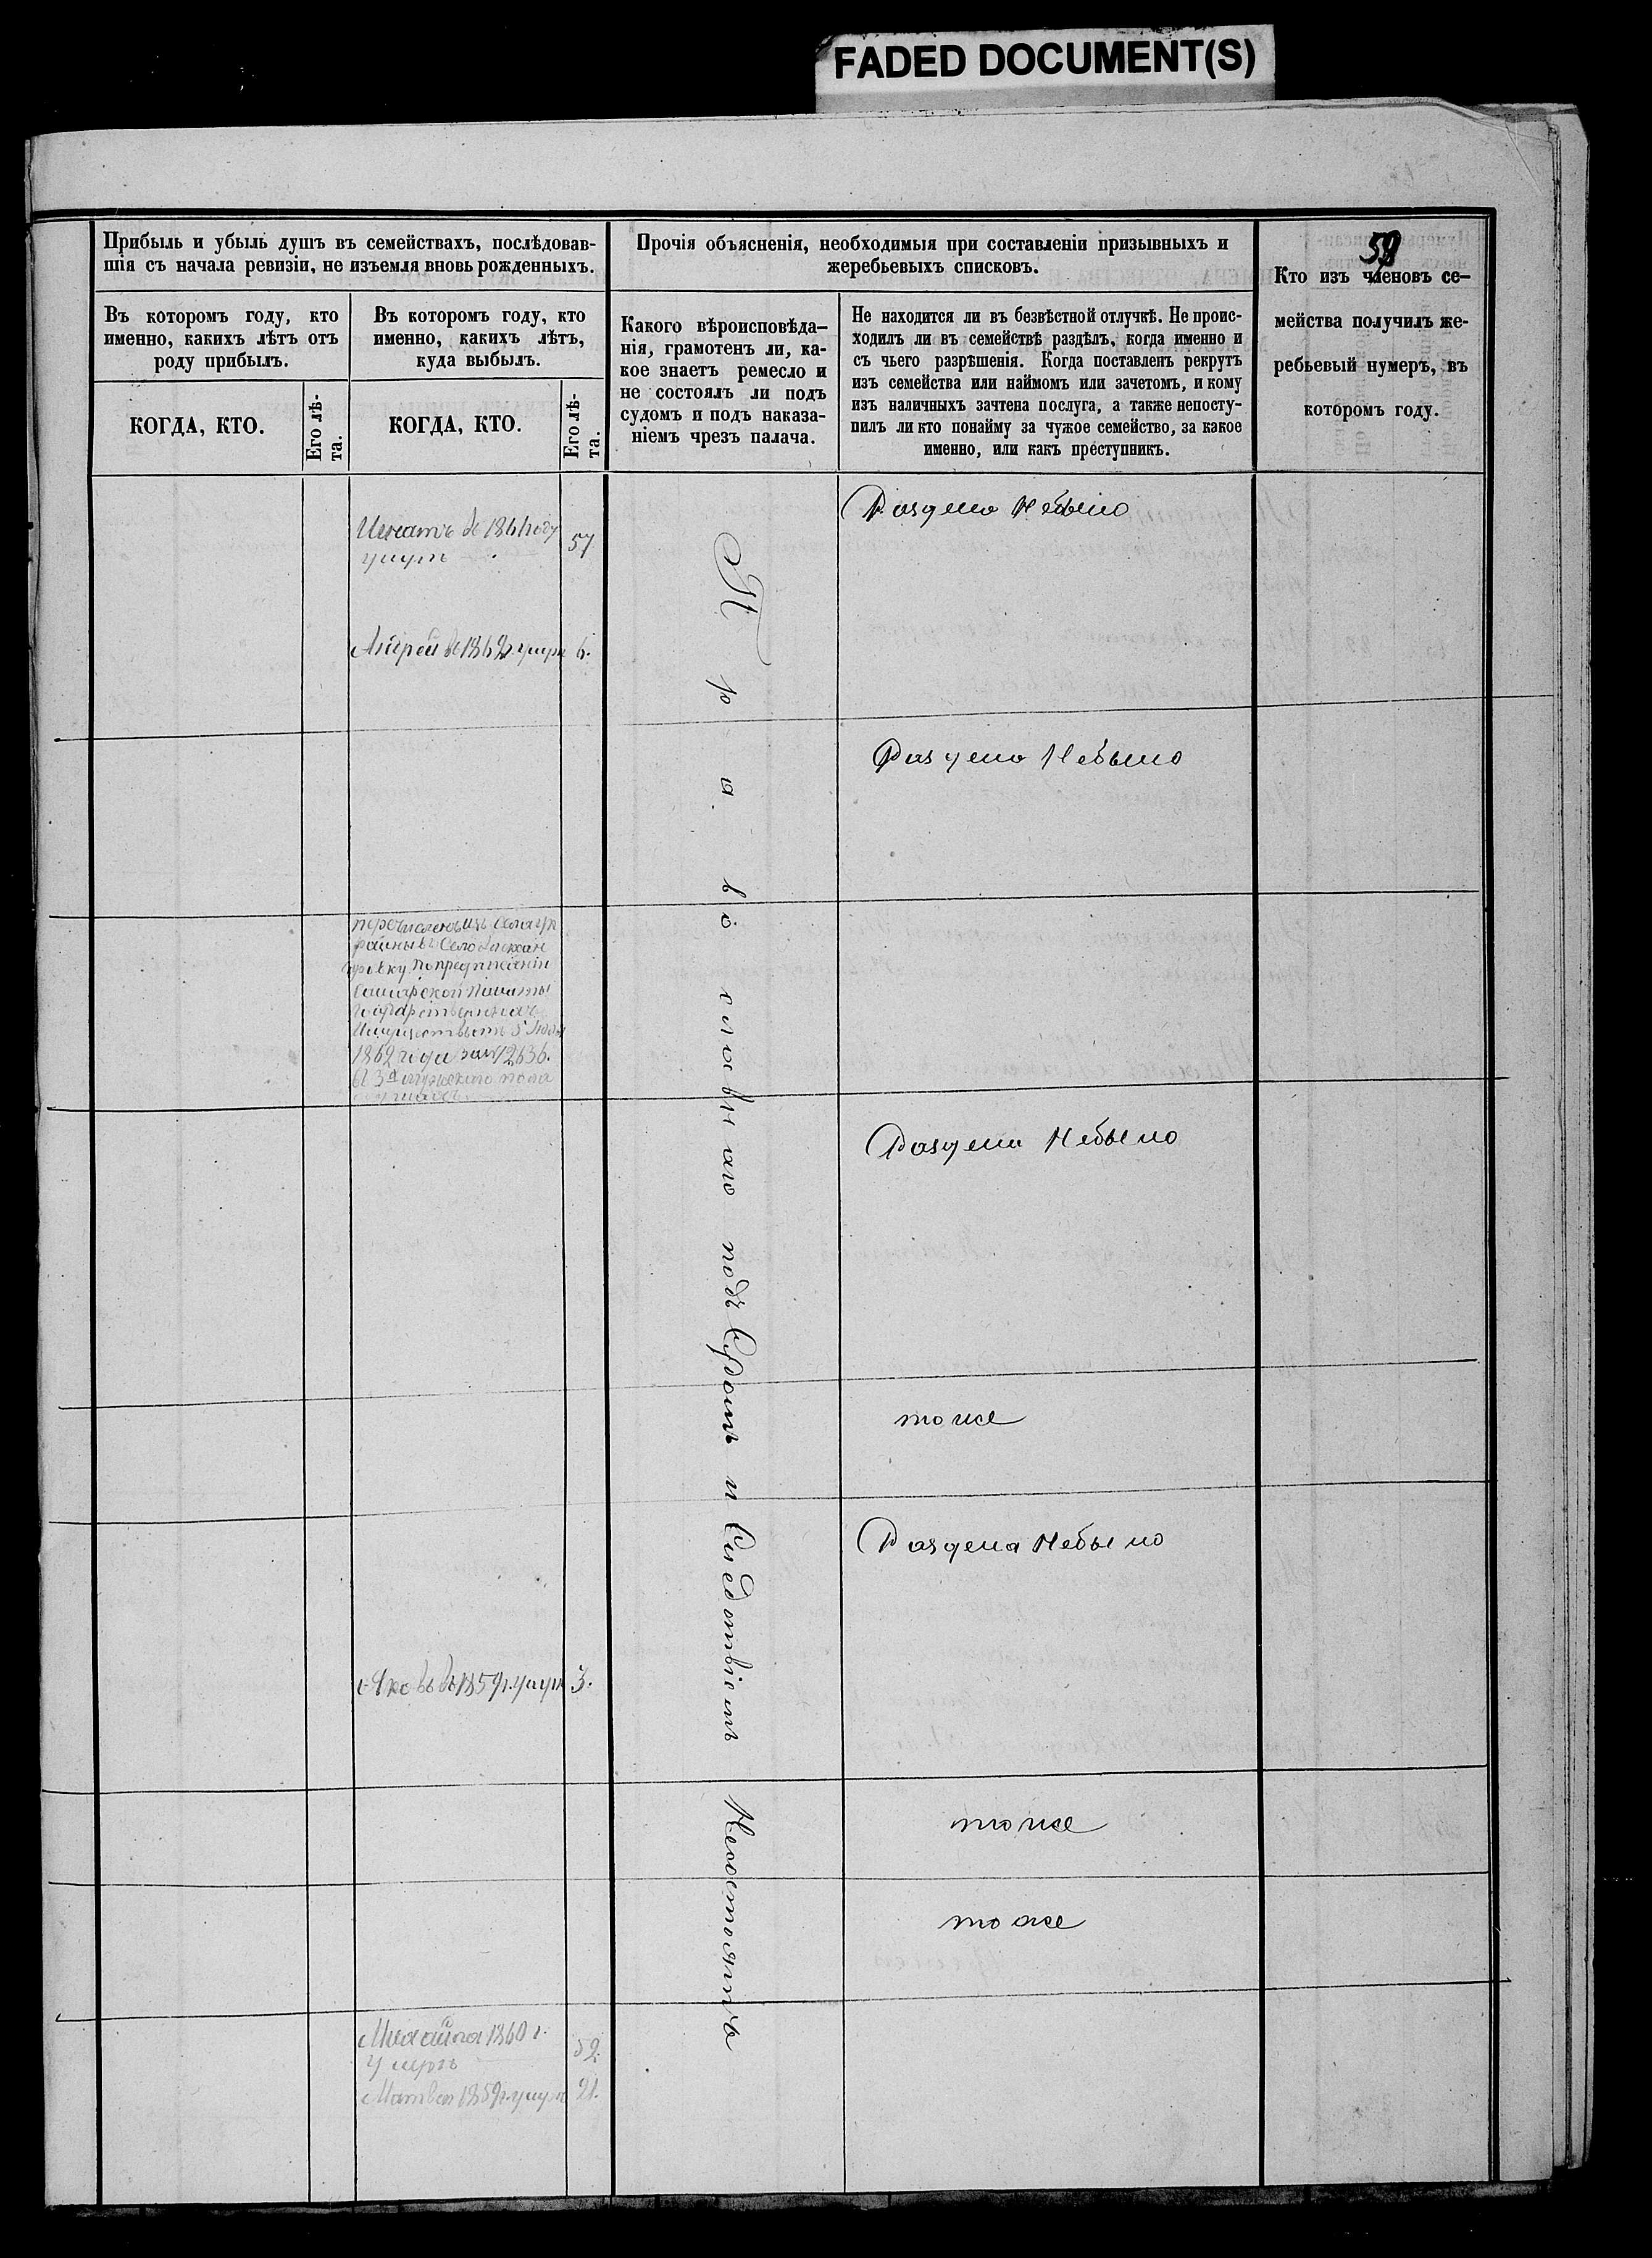 FADED DOCUMENT(S)
Прибыль и убыль душъ въ семействахъ, послѣдовав-
шія съ начала ревизіи, не изъемля вновь рожденныхъ.
Въ которомъ году, кто
именно, какихъ лѣтъ отъ
роду прибылъ.
Въ которомъ году, кто
именно, какихъ лѣтъ,
куда выбылъ.
КОГДА, КТО.
Его лѣ-
та.
КОГДА, КТО.
Его лѣ-
та.
Прочія объясненія, необходимыя при составленіи призывныхъ и
жеребьевыхъ списковъ.
Какого вѣроисповѣда-
нія, грамотенъ ли, ка-
кое знаетъ ремесло и
не состоялъ ли подъ
судомъ и подъ наказа-
ніемъ чрезъ палача.
Не находится ли въ безвѣстной отлучкѣ. Не проис-
ходилъ ли въ семействѣ раздѣлъ, когда именно и
съ чьего разрѣшенія. Когда поставленъ рекрутъ
изъ семейства или наймомъ или зачетомъ, и кому
изъ наличныхъ зачтена послуга, а также непосту-
пилъ ли кто понайму за чужое семейство, за какое
именно, или какъ преступникъ.
Кто изъ членовъ се-
мейства получилъ же-
ребьевый нумеръ, въ
которомъ году.
Игнатъ въ 1861 году
умеръ
57
Андрей въ 1862 г. умеръ 6.
Раздела Небыло
Раздела Небыло
перечисленъ изъ Села
Село
по предписанію
Самарской Палаты
Государственныхъ
Имуществъ отъ 5 Июля
1862 года за № 12636.
3 д мужескаго пола
Раздела Небыло
тоже
Раздела Небыло
Яковъ въ 1859 г. умеръ 3.
тоже
тоже
Михайла 1860 г.
Умеръ
52.
Матвей 1859 г. умеръ 21.
Православнаго подъ Судомъ и Следствіемъ Несостоятъ